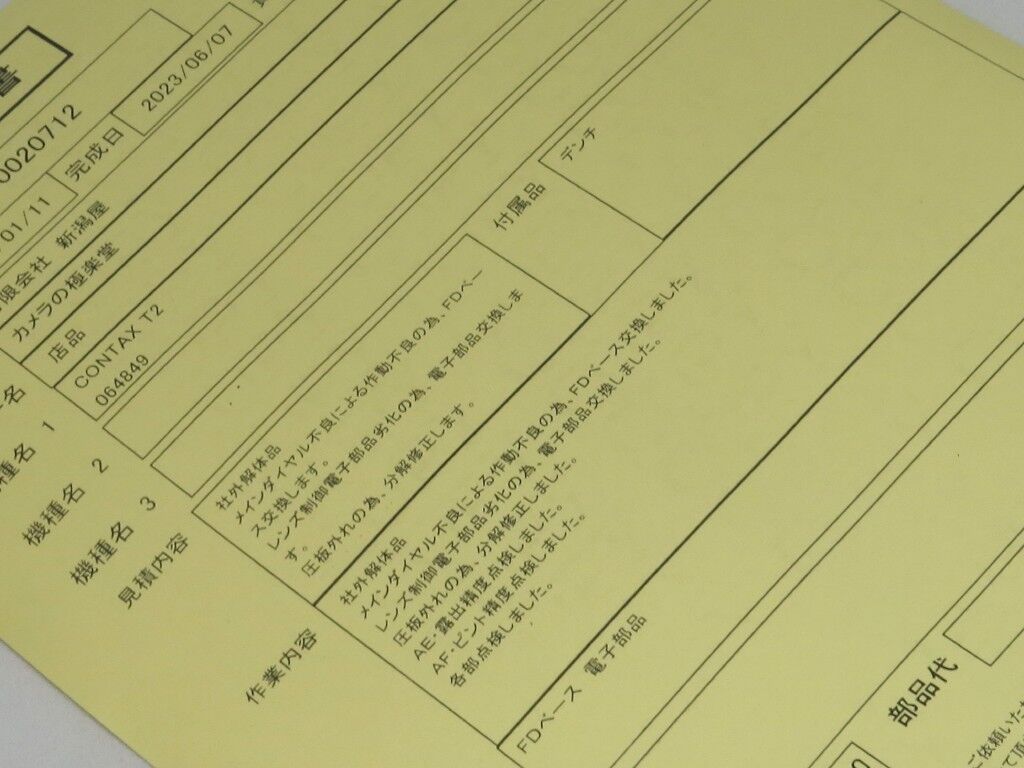 書
0020712
01/11 完成日 2023/06/07
限会社 新潟屋
カメラの極楽堂
名 店品
機種名 1 CONTAX T2
064849
機種名 2
機種名 3
見積内容
社外解体品
メインダイヤル不良による作動不良の為、FDベー
ス交換します。
レンズ制御電子部品劣化の為、電子部品交換しま
す。
圧板外れの為、分解修正します。
付属品 デンチ
作業内容
社外解体品
メインダイヤル不良による作動不良の為、FDベース交換しました。
レンズ制御電子部品劣化の為、電子部品交換しました。
圧板外れの為、分解修正しました。
AE・露出精度点検しました。
AF・ピント精度点検しました。
各部点検しました。
FDベース 電子部品
部品代
ご依頼いただ
て頂